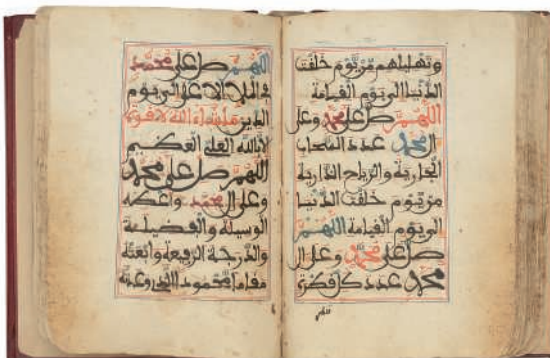 وتهليلهم من يوم خلقت
الدنيا الى يوم القيامة
اللهم صل على محمد وعلى
ال محمد عدد السحاب
الجارية والرياح الذارية
من يوم خلقت الدنيا
الى يوم القيامة اللهم
صل على محمد وعلى ال
محمد عدد كل قطرة
اللهم صل على محمد
في الملإ الاعلى الى يوم
الدين ما شاء الله لا قوة
الا بالله العلي العظيم
اللهم صل على محمد
وعلى ال محمد واعطه
الوسيلة والفضيلة
والدرجة الرفيعة وابعثه
مقاما محمودا الذي وعدته